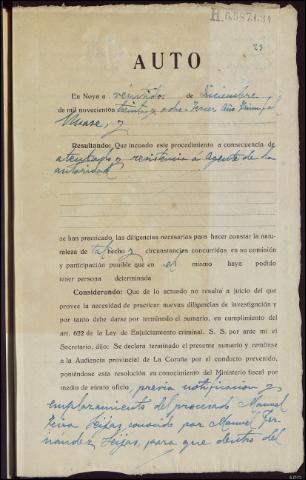 H.6587.634
23
AUTO
En Noya a veintidos de Diciembre
de mil novecientos treinta y ocho. Tercer Año Triunfal
y
Resultando: Que incoado este procedimiento a consecuencia de
atentado y resistencia a Agente de la
autoridad
se han practicado las diligencias necesarias para hacer constar la natu-
raleza de tal hecho y circunstancias concurridas en su comisión
y participación punible que en el mismo haya podido
tener persona determinada
Considerando: Que de lo actuado no resulta a juicio del que
provee la necesidad de practicar nuevas diligencias de investigación y
por tanto debe darse por terminado el sumario, en cumplimiento del
art. 622 de la Ley de Enjuiciamiento criminal, S. S. por ante mi el
Secretario, dijo: Se declara terminado el presente sumario y remítase
a la Audiencia provincial de La Coruña por el conducto prevenido,
poniéndose esta resolución en conocimiento del Ministerio fiscal por
medio de atento oficio, previa notificacion y
emplazamiento del procesado Manuel
Leira Seijas, conocido por Manuel Fer-
nández Seijas, para que dentro del